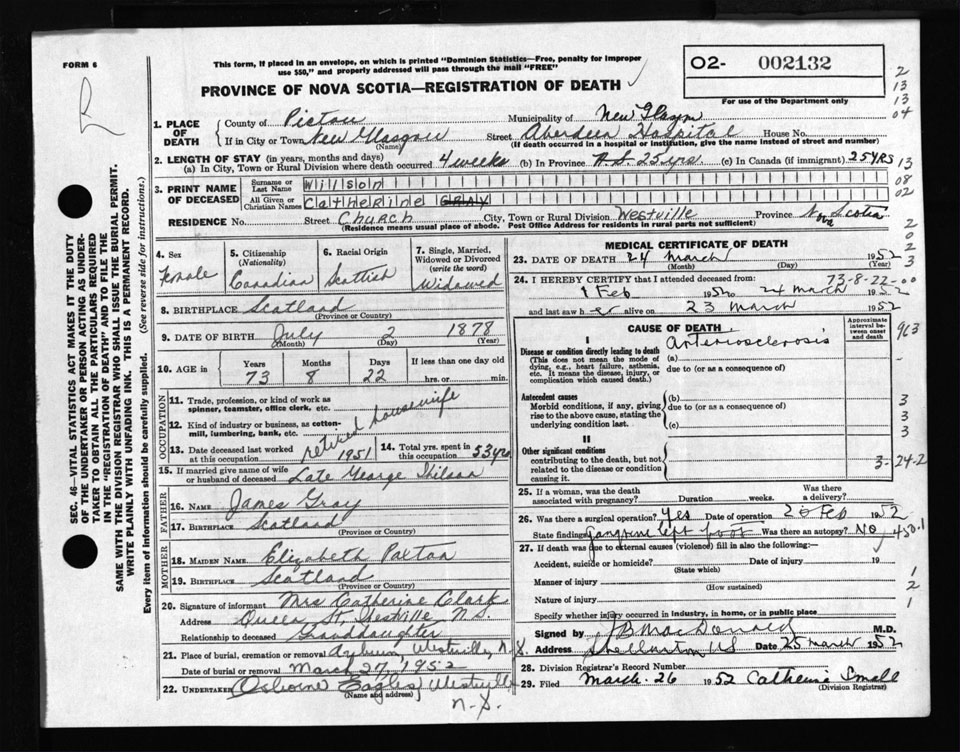 FORM 6
This form, if placed in an envelope, on which is printed "Dominion Statistics—Free, penalty for improper
use $50," and properly addressed will pass through the mail "FREE"
PROVINCE OF NOVA SCOTIA—REGISTRATION OF DEATH
O2- 002132
For use of the Department only
R
2
13
13
04
1. PLACE OF DEATH
County of Pictou
Municipality of New Glasgow
If in City or Town New Glasgow
(Name)
Street Aberdeen Hospital House No.
(If death occurred in a hospital or institution, give the name instead of street and number)
2. LENGTH OF STAY (in years, months and days)
(a) In City, Town or Rural Division where death occurred 4 weeks (b) In Province N.S. 25 yrs. (c) In Canada (if immigrant) 25 YRS
13
08
02
3. PRINT NAME OF DECEASED
Surname or Last Name Wilson
All Given or Christian Names Catherine GRAY
RESIDENCE No. Street Church City, Town or Rural Division Westville Province Nova Scotia
(Residence means usual place of abode. Post Office Address for residents in rural parts not sufficient)
2
0
2
3
4. Sex
Female
5. Citizenship
(Nationality)
Canadian
6. Racial Origin
Scottish
7. Single, Married,
Widowed or Divorced
(write the word)
Widowed
8. BIRTHPLACE Scotland
(Province or Country)
9. DATE OF BIRTH July 2 1878
(Month) (Day) (Year)
10. AGE in
Years Months Days If less than one day old
73 8 22 hrs. or min.
OCCUPATION
11. Trade, profession, or kind of work as
spinner, teamster, office clerk, etc.
12. Kind of industry or business, as cotton-
mill, lumbering, bank, etc.
retired housewife
13. Date deceased last worked
at this occupation 1951
14. Total yrs. spent in
this occupation 53 yrs
15. If married give name of wife
or husband of deceased Late George Wilson
FATHER
16. Name James Gray
17. Birthplace Scotland
(Province or Country)
MOTHER
18. Maiden Name Elizabeth
19. Birthplace Scotland
(Province or Country)
20. Signature of informant Mrs Catherine Clark
Address Queen St, Westville N.S.
Relationship to deceased Granddaughter
21. Place of burial, cremation or removal Auburn Westville N.S.
Date of burial or removal March 27, 1952
22. Undertaker (Osborne Eagles) Westville
(Name and address)
N.S.
MEDICAL CERTIFICATE OF DEATH
23. DATE OF DEATH 24 March 1952
(Month) (Day) (Year)
24. I HEREBY CERTIFY that I attended deceased from: 73-8-22-00
1 Feb 1952 to 24 March 1952
and last saw her alive on 23 March 1952
CAUSE OF DEATH
Approximate
interval be-
tween onset
and death
963
I
Disease or condition directly leading to death
(This does not mean the mode of
dying, e.g., heart failure, asthenia,
etc. It means the disease, injury, or
complication which caused death.)
Arteriosclerosis
(a)
due to (or as a consequence of)
Antecedent causes
Morbid conditions, if any, giving
rise to the above cause, stating the
underlying condition last.
(b)
due to (or as a consequence of)
(c)
3
3
3
II
Other significant conditions
contributing to the death, but not
related to the disease or condition
causing it.
3-24-2
25. If a woman, was the death
associated with pregnancy? Duration weeks.
Was there
a delivery?
26. Was there a surgical operation? Yes Date of operation 20 Feb 1952
State findings Gangrene left foot Was there an autopsy? No
450.1
27. If death was due to external causes (violence) fill in also the following:—
Accident, suicide or homicide? Date of injury 19
(State which)
Manner of injury
(How sustained)
Nature of injury
Specify whether injury occurred in industry, in home, or in public place
1
2
1
Signed by JB MacDonald M.D.
Address Stellarton NS Date 25 March 1952
28. Division Registrar's Record Number
29. Filed March 26 1952 Catherine Small
(Division Registrar)
SEC. 46—VITAL STATISTICS ACT MAKES IT THE DUTY
OF THE UNDERTAKER OR PERSON ACTING AS UNDER-
TAKER TO OBTAIN ALL THE PARTICULARS REQUIRED
IN THE "REGISTRATION OF DEATH" AND TO FILE THE
SAME WITH THE DIVISION REGISTRAR WHO SHALL ISSUE THE BURIAL PERMIT.
WRITE PLAINLY WITH UNFADING INK. THIS IS A PERMANENT RECORD.
Every item of information should be carefully supplied. (See reverse side for instructions.)